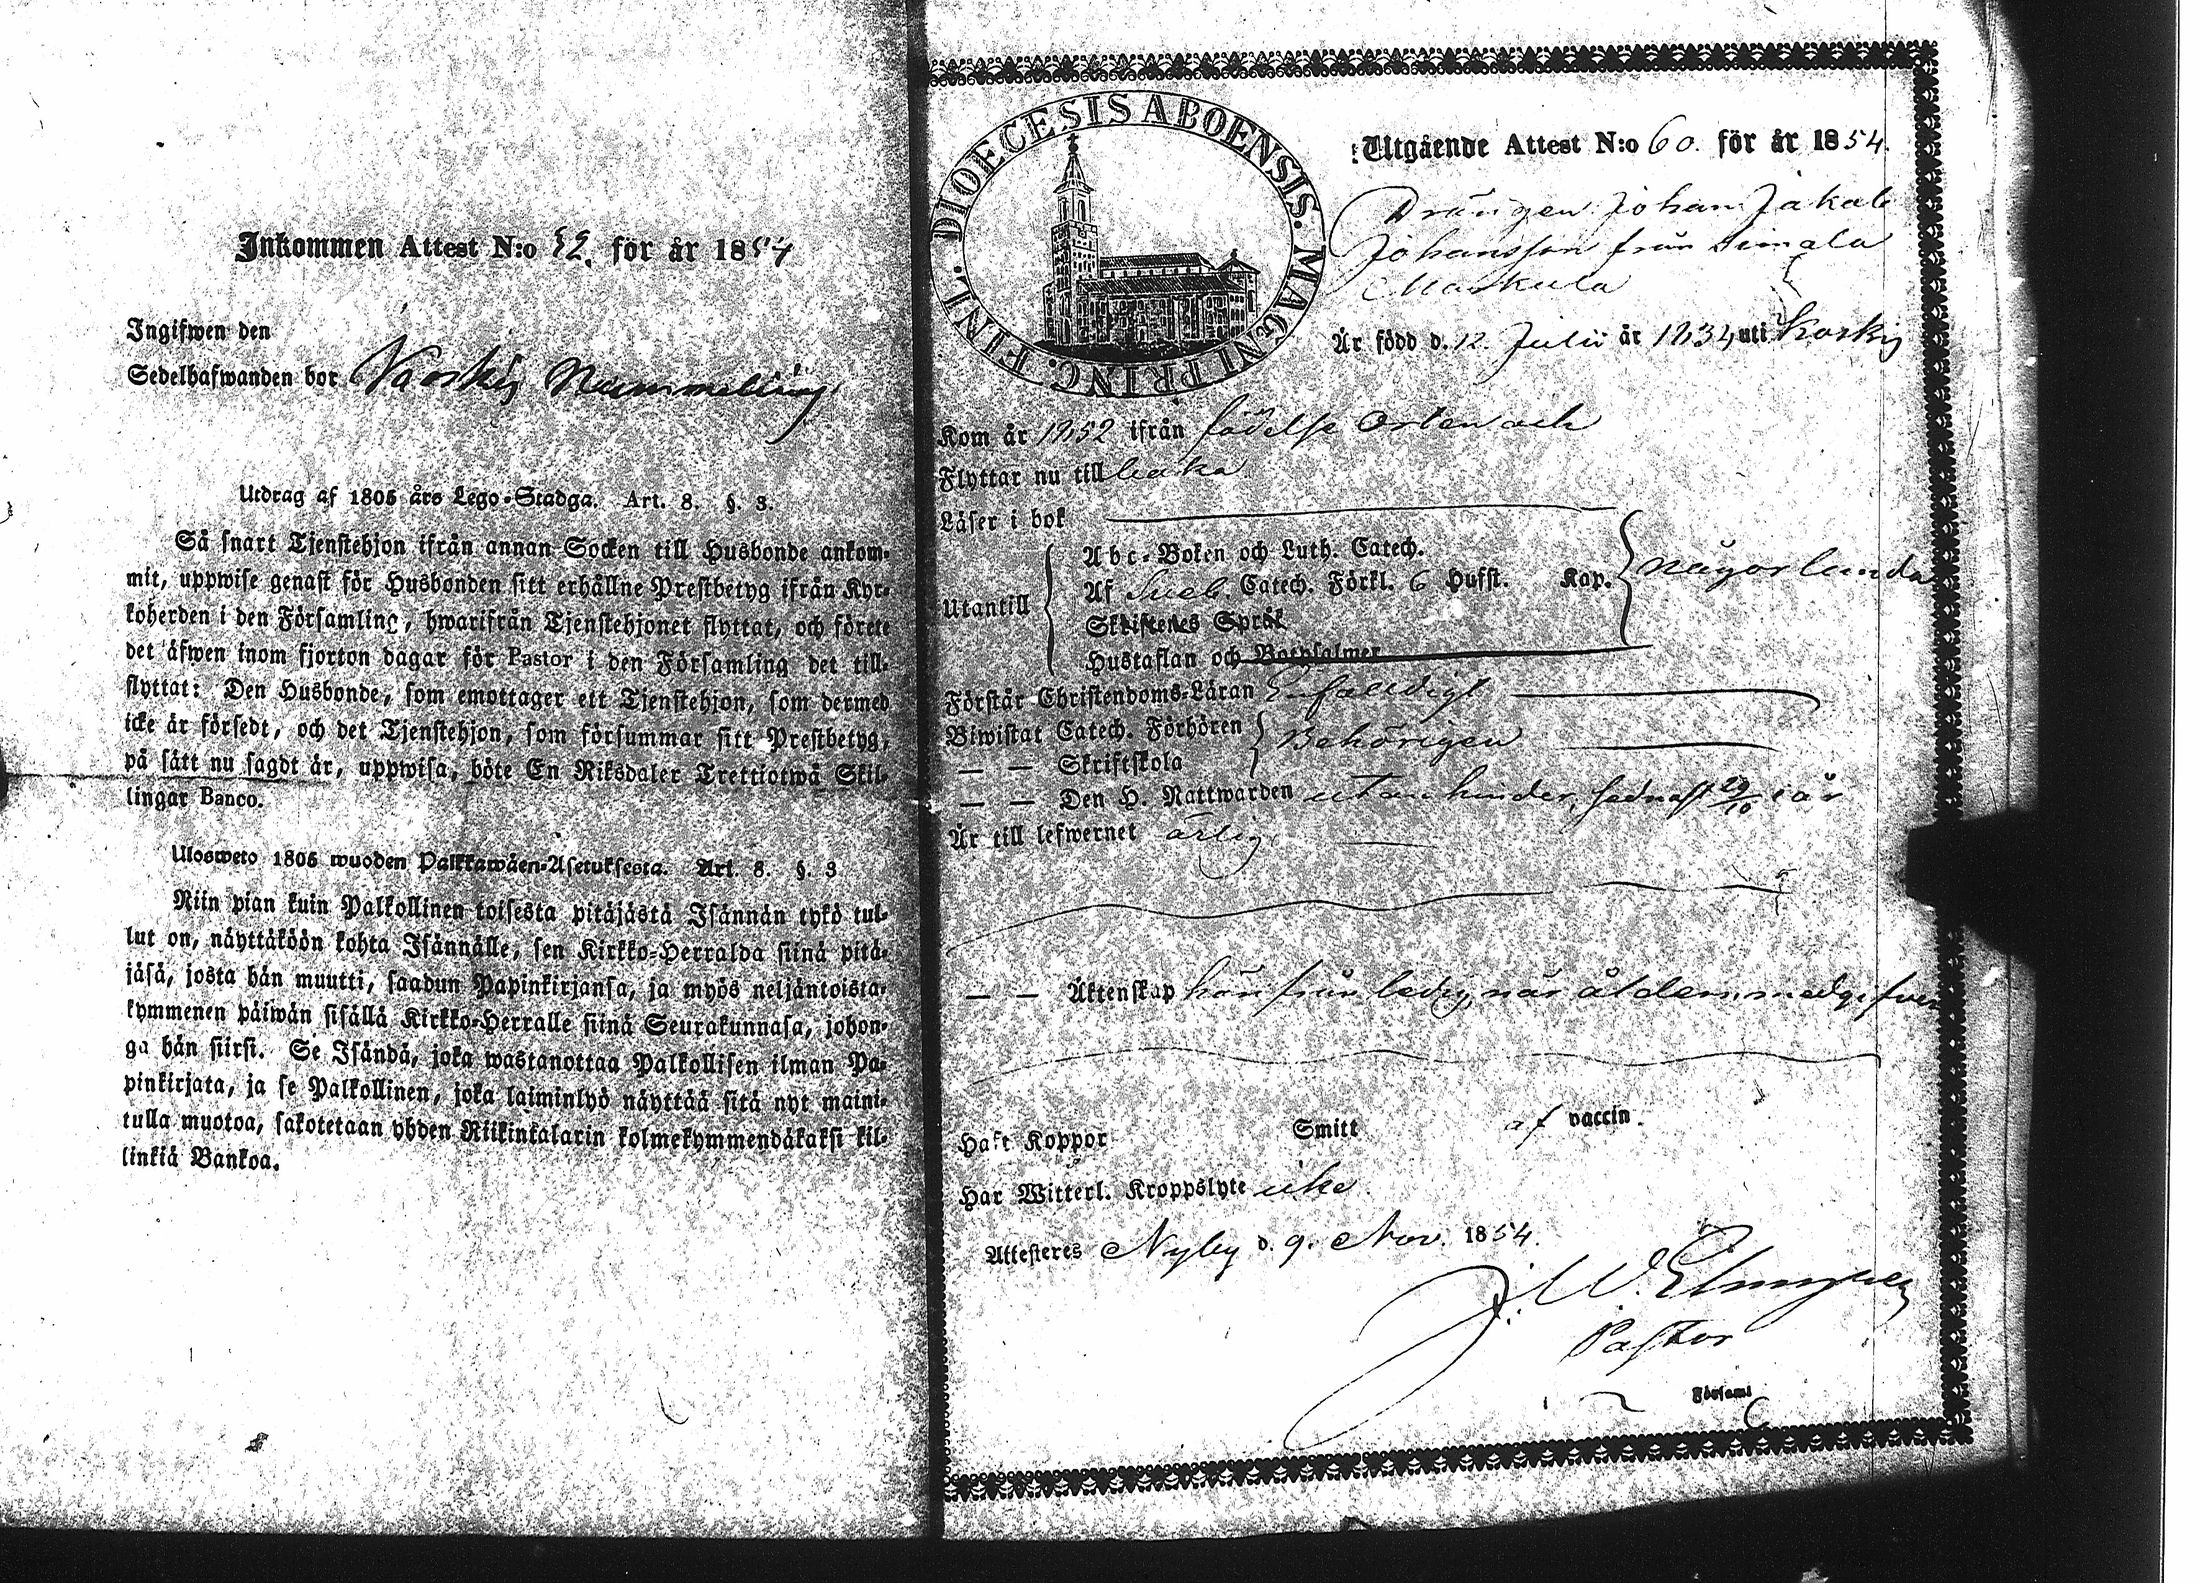 Inkommen Attest N:o 52. för år 1854
Ingifwen den
Sedelhafwanden bor Koskis Nummelin
Utdrag af 1805 års Lego-Stadga. Art. 8. §. 3.
Så snart Tjenstehjon ifrån annan Socken till Husbonde ankom-
mit, uppwise genast för Husbonden sitt erhållne Prestbetyg ifrån Kyr-
koherden i den Församling, hwarifrån Tjenstehjonet flyttat, och förete
det äfwen inom fjorton dagar för Pastor i den Församling det till-
flyttat: Den Husbonde, som emottager ett Tjenstehjon, som dermed
icke är försedt, och det Tjenstehjon, som försummar sitt Prestbetyg,
på sätt nu sagdt är, uppwisa, böte En Riksdaler Trettiotwå Skil-
lingar Banco.
Ulosweto 1805 wuoden Palkkawäen-Asetuksesta. Art. 8. §. 3
Niin pian kuin Palkollinen toisesta pitäjästä Isännän tykö tul-
lut on, näyttäköön kohta Isännälle, sen Kirkko-Herralda siinä pitä-
jäsä, josta hän muutti, saadun Papinkirjansa, ja myös neljäntoista-
kymmenen päiwän sisällä Kirkko-Herralle siinä Seurakunnasa, johon-
ga hän siirsi. Se Isändä, joka wastanottaa Palkollisen ilman Pa-
pinkirjata, ja se Palkollinen, joka laiminlyö näyttää sitä nyt maini-
tulla muotoa, sakotetaan yhden Riikinkalarin kolmekymmendäkaksi kil-
linkiä Bankoa.
FINL. DIOECESIS ABOENSIS. MAGNI. PRINC.
Utgående Attest N:o 60. för år 1854.
Drängen Johan Jakob
Johansson från Simala
Markula
Är född d. 12. Julii år 1834 uti Koskis
Kom år 1852 ifrån födelse Orten och
Flyttar nu till baka
Läser i bok
Utantill
Abc-Boken och Luth. Catech.
Af Sveb. Catech. Förkl. 6 Hufst. Kap.
Skriftenes Språk
Hustaflan och Botpsalmer
någorlunda
Förstår Christendoms-Läran Enfaldigt
Biwistat Catech. Förhören
— — Skriftskola
Behörigen
— — Den H. Nattwarden utan hinder, sednast 29/10 i år
Är till lefwernet ärlig
— — Äktenskap härifrån ledig, när åldern medgifver
Haft Koppor Smitt af vaccin.
Har Witterl. Kroppslyte icke.
Attesteres Nyby d. 9. Nov. 1854.
J. W. Elmgren
Pastor
Församl